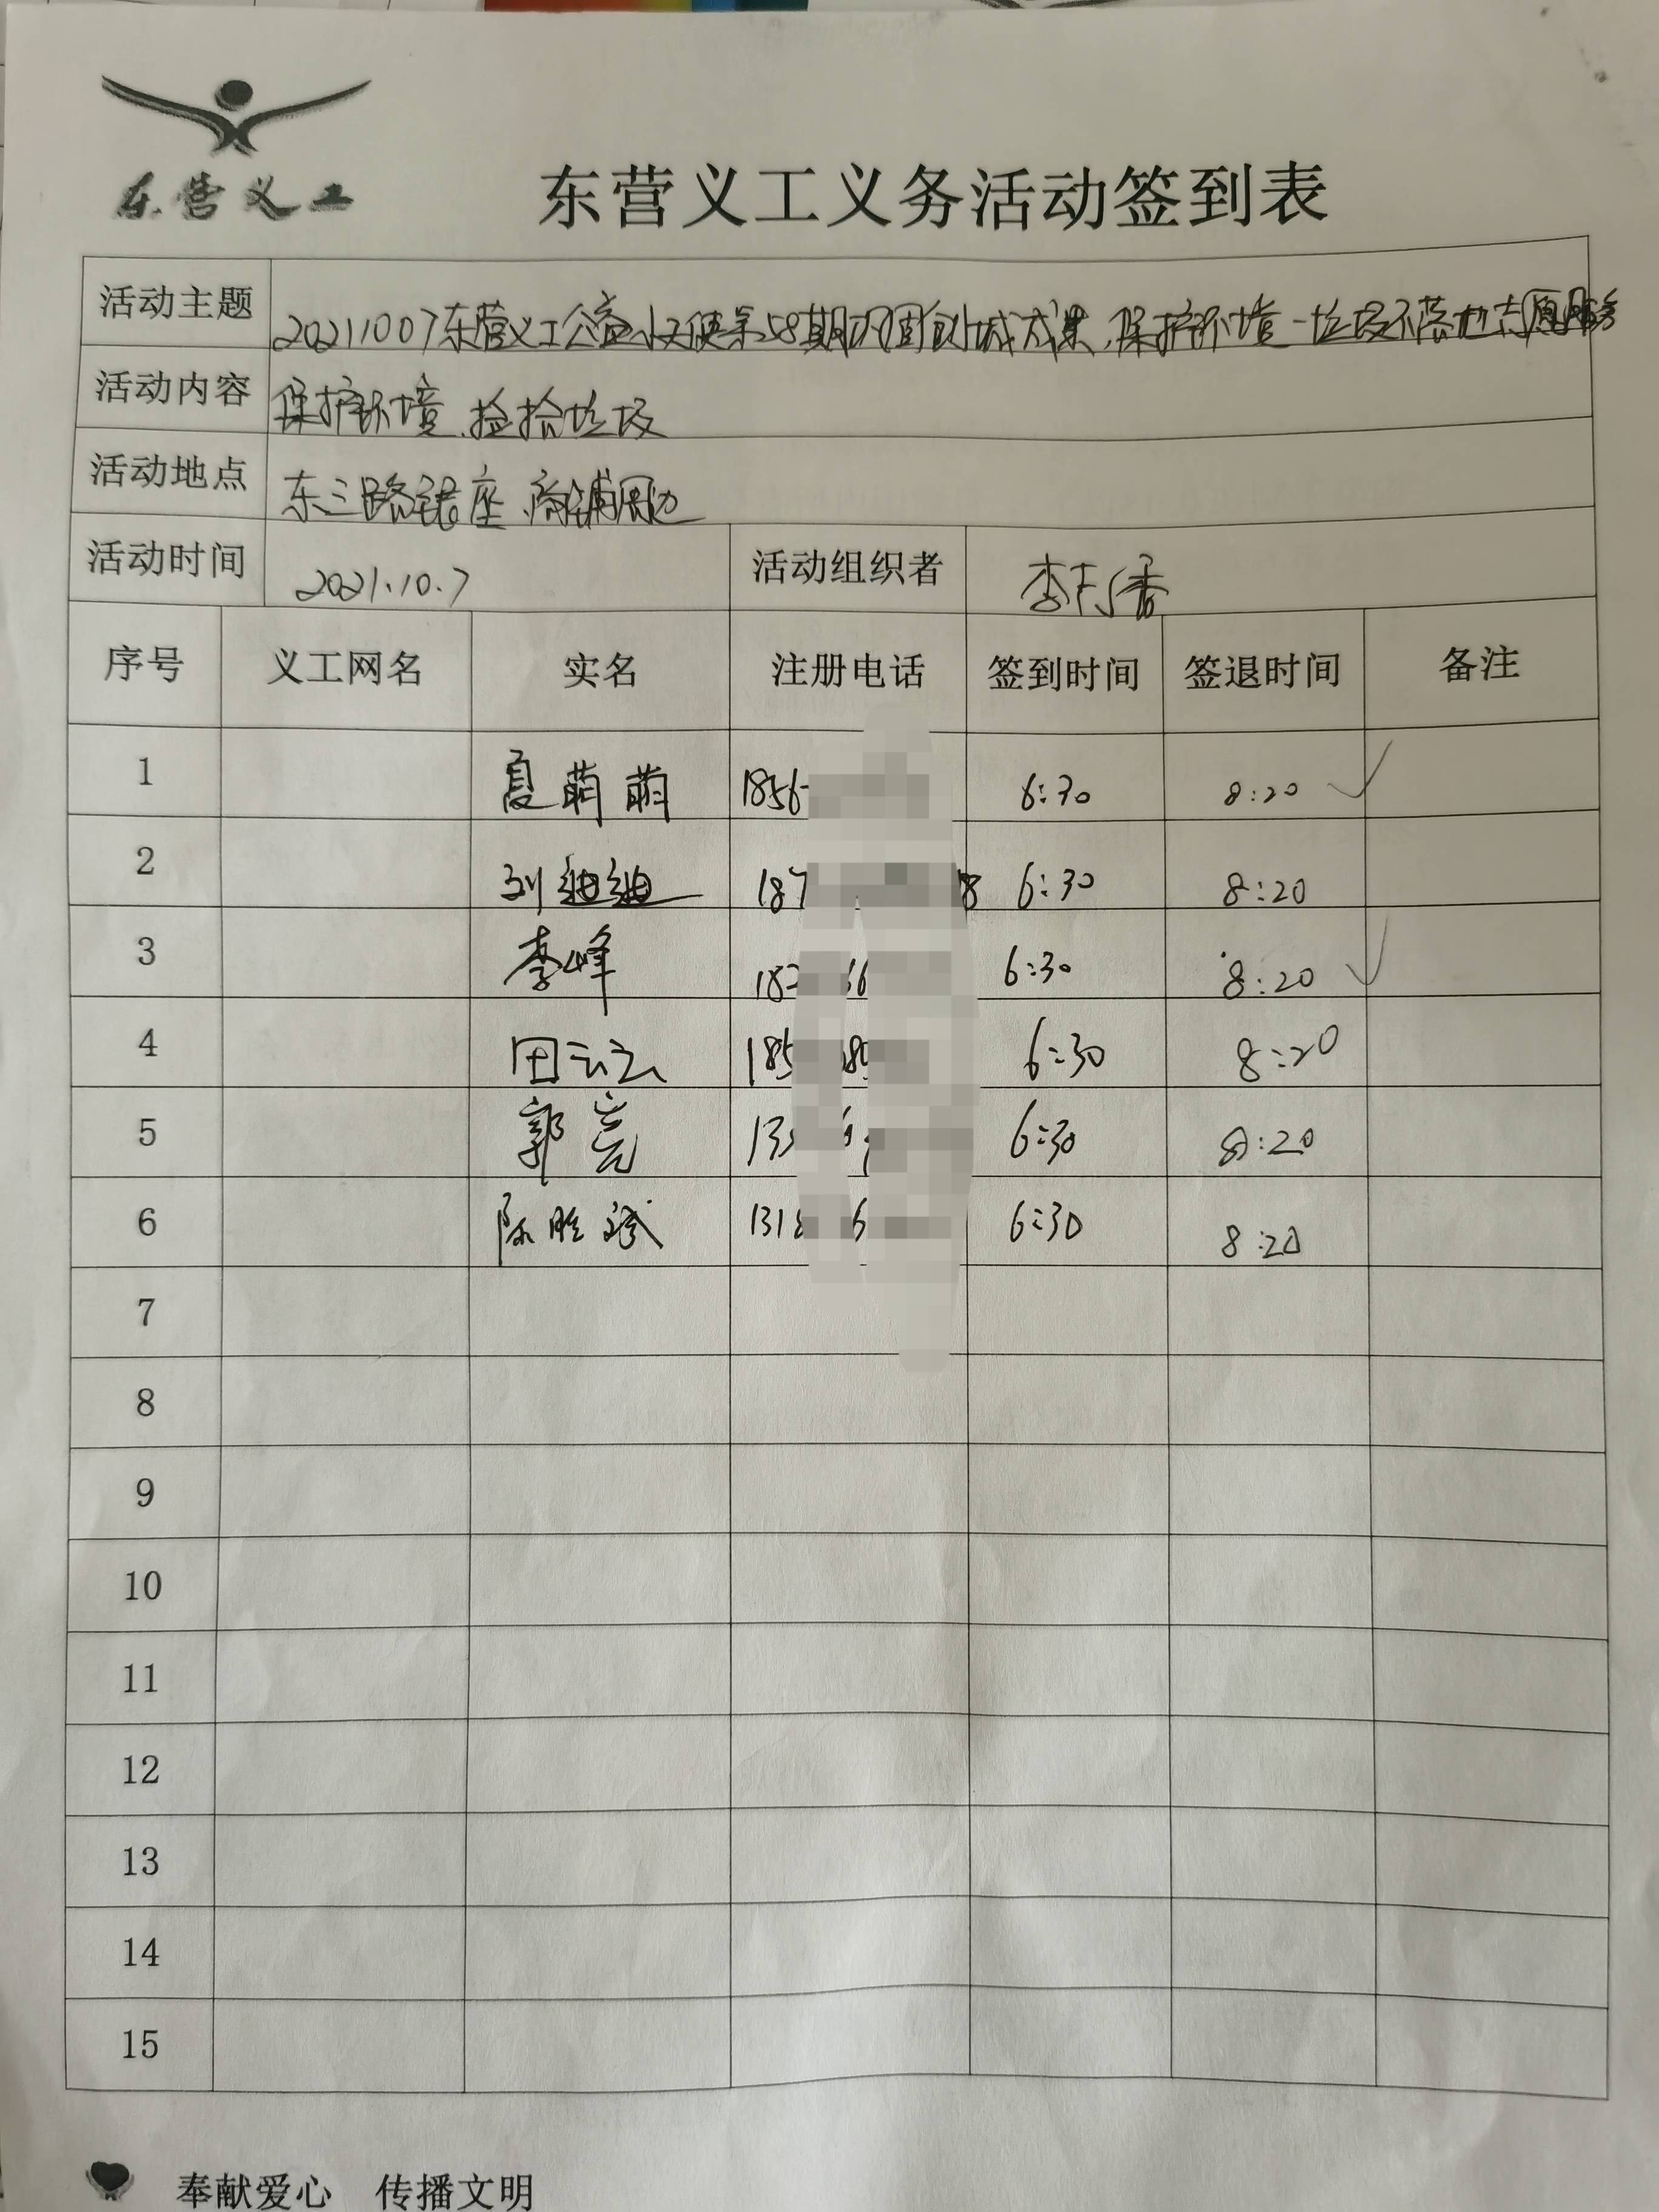 东营义工
东营义工义务活动签到表
活动主题 20211007东营义工公益小天使第58期巩固创城成果,保护环境-垃圾不落地志愿服务
活动内容 保护环境、捡拾垃圾
活动地点 东三路银座、商铺周边
活动时间 2021.10.7 活动组织者 李香
序号 义工网名 实名 注册电话 签到时间 签退时间 备注
1 夏萌萌 1856 6:30 8:20 ✓
2 刘迪迪 187 8 6:30 8:20
3 李峰 182 66 6:30 8:20 ✓
4 田云云 185 6:30 8:20
5 郭亮 13 6:30 8:20
6 陈胜斌 131 6 6:30 8:20
7
8
9
10
11
12
13
14
15
奉献爱心 传播文明